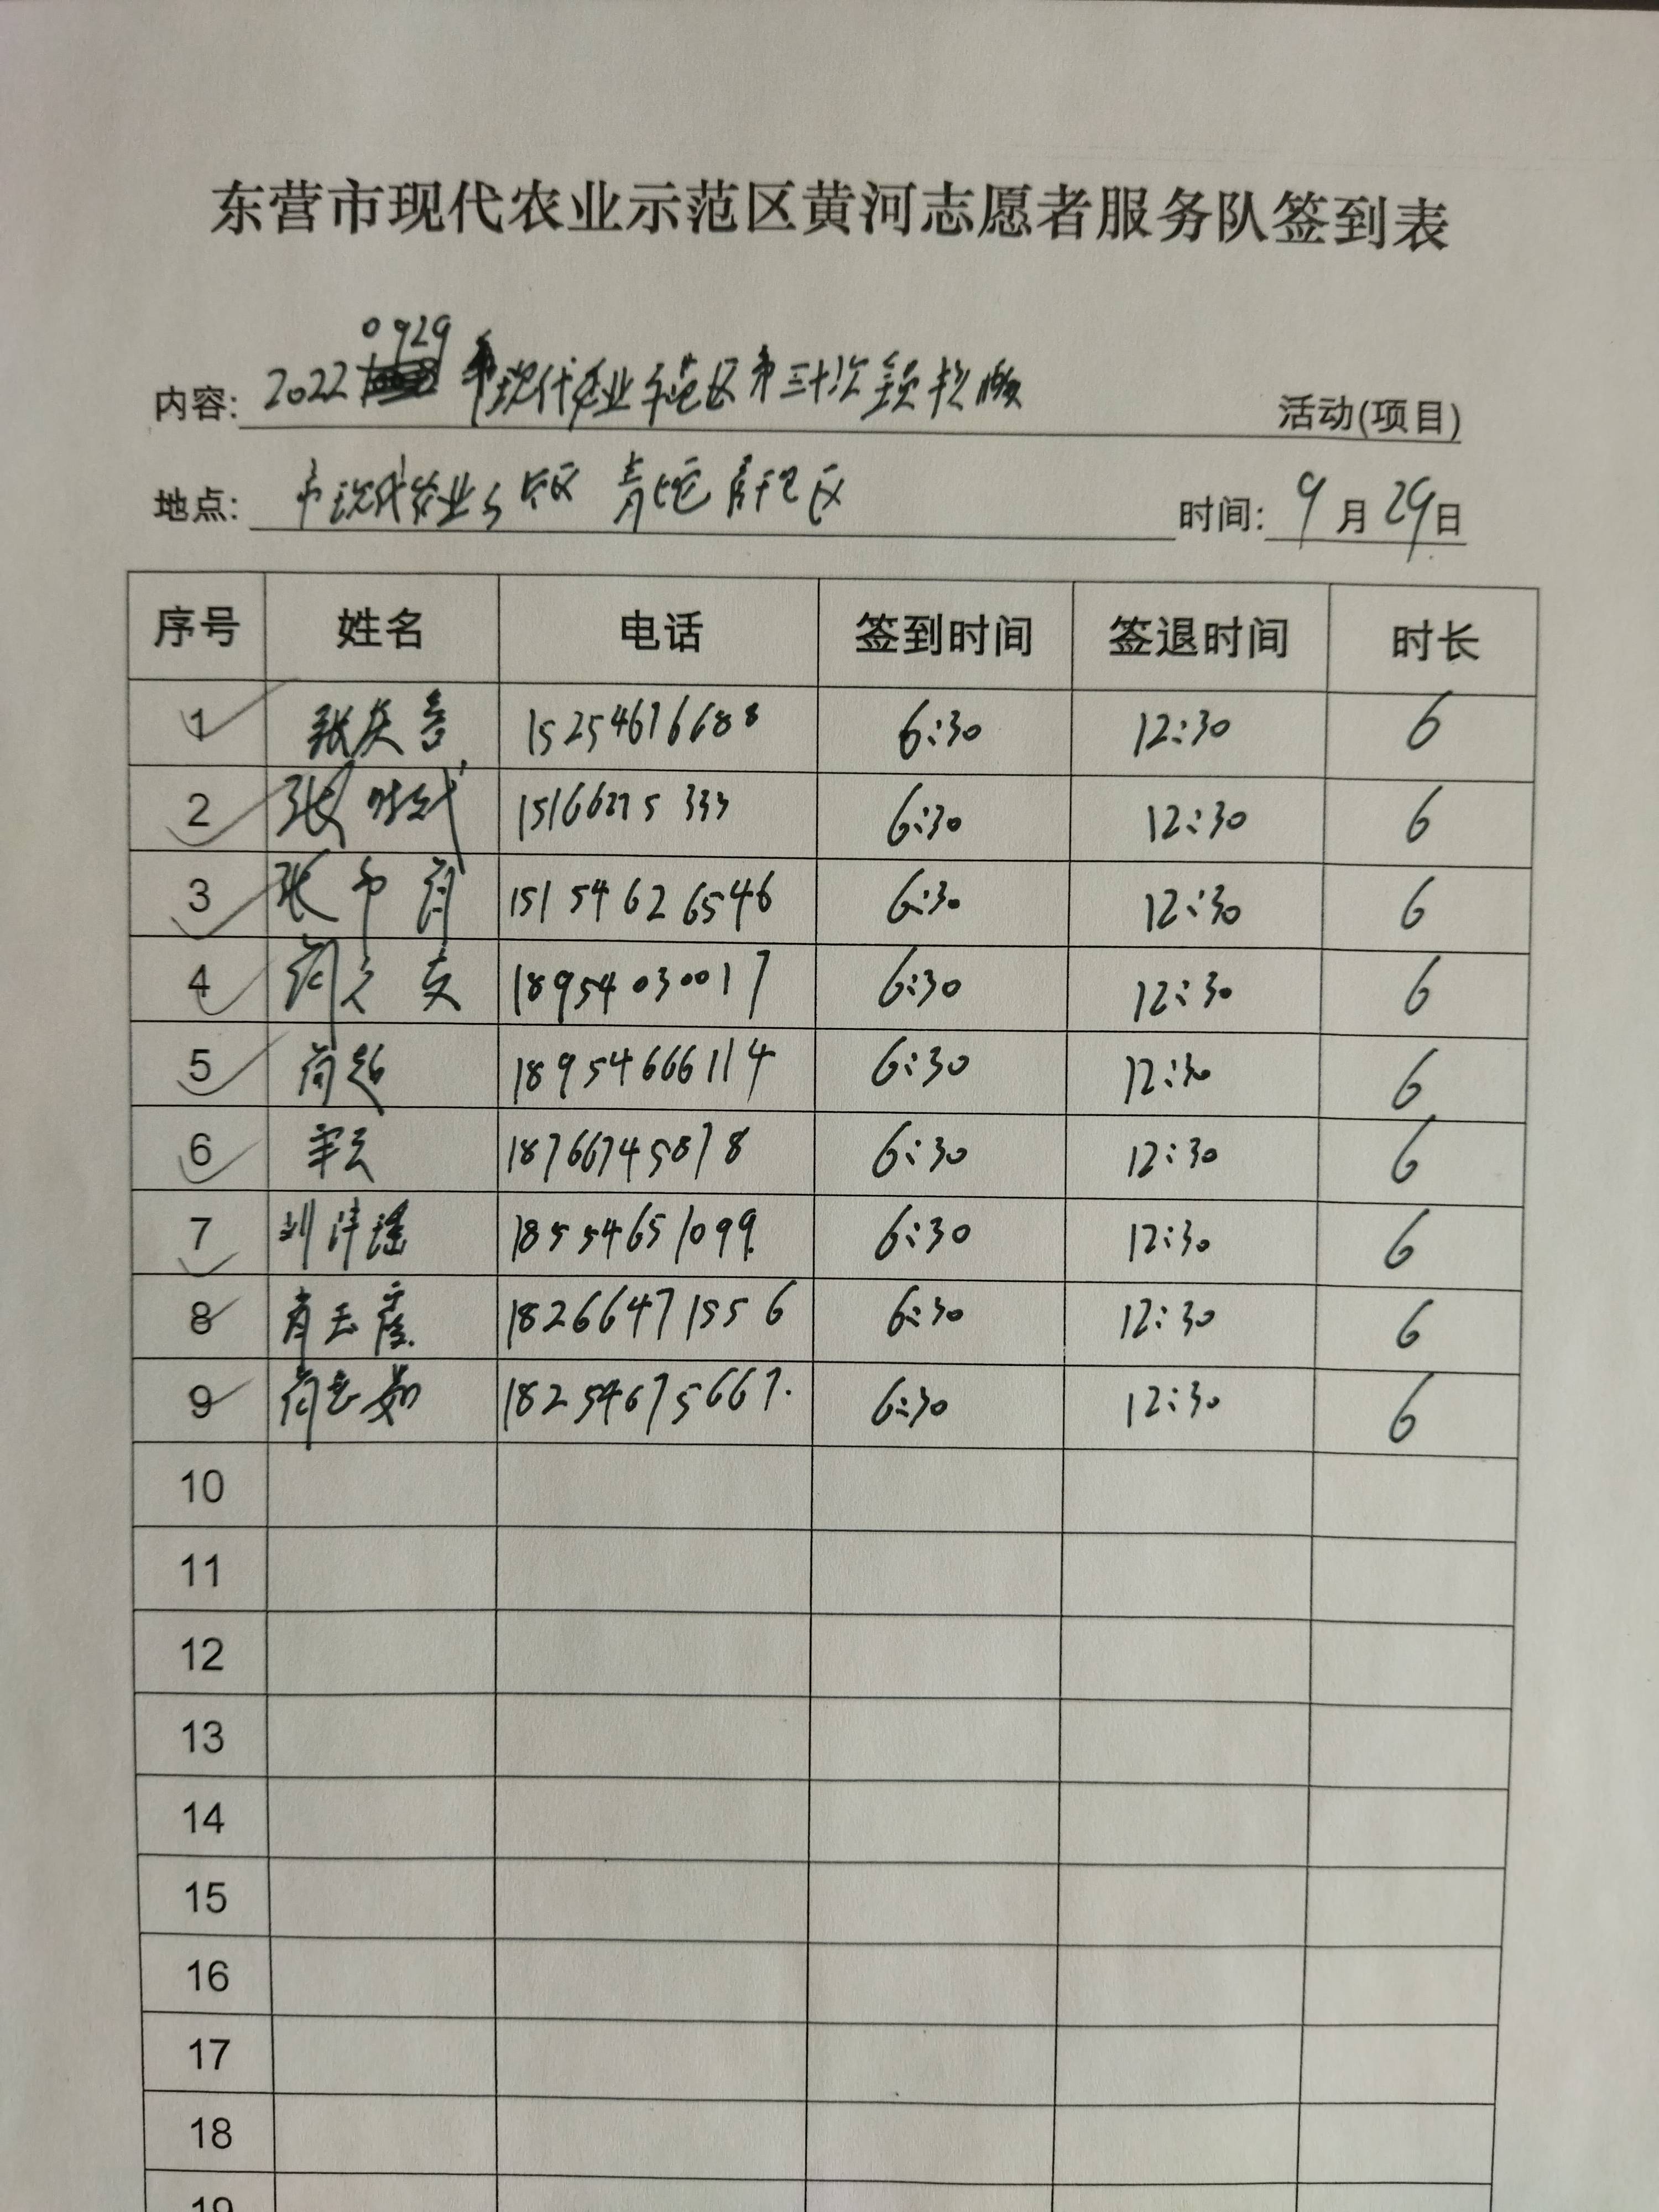 东营市现代农业示范区黄河志愿者服务队签到表
0929
内容: 2022 市现代农业示范区第三十次全员核酸 活动(项目)
地点: 市现代农业示范区 青坨 区 时间: 9月29日
序号 姓名 电话 签到时间 签退时间 时长
1 张庆 15254676688 6:30 12:30 6
2 张 6:30 12:30 6
3 张 15154626546 6:30 12:30 6
4 18954030017 6:30 12:30 6
5 荀超 18954666114 6:30 12:30 6
6 18766745878 6:30 12:30 6
7 刘洋瑶 18554651099 6:30 12:30 6
8 18266471556 6:30 12:30 6
9 18254675667. 6:30 12:30 6
10
11
12
13
14
15
16
17
18
19